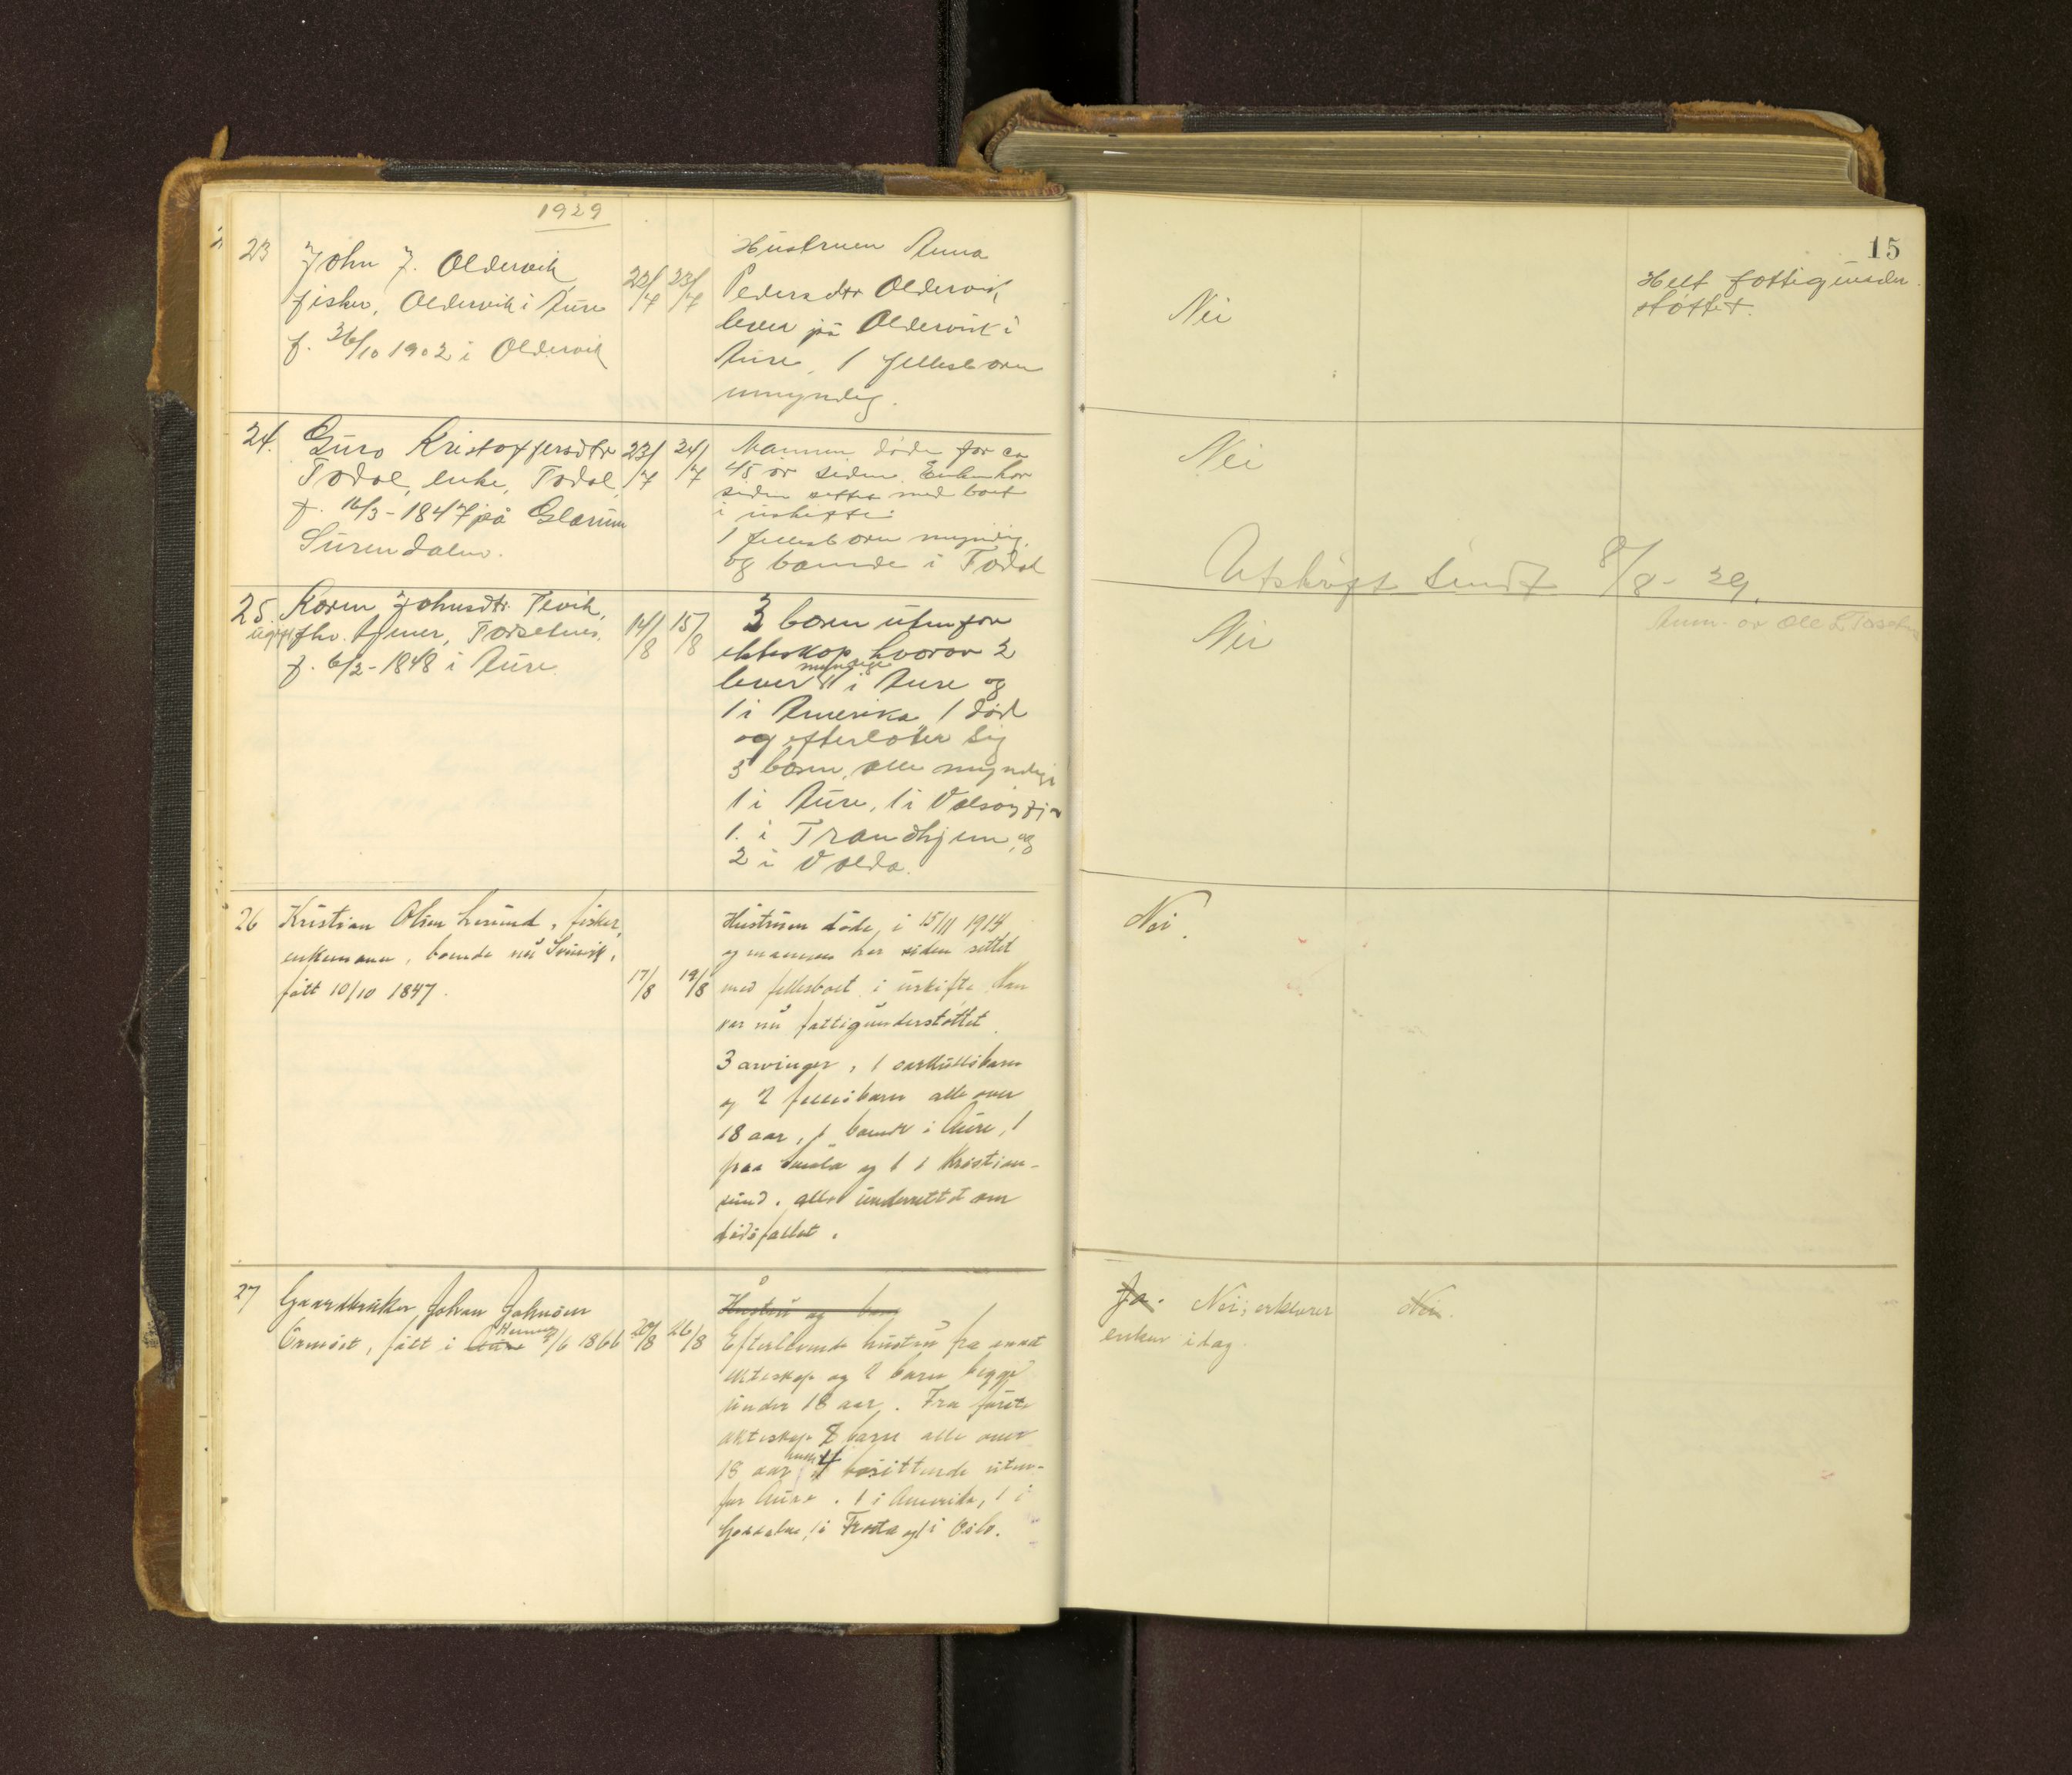 1929
15
23
John J. Oldervik
fisker, Oldervik i Aure
f. 26/10 1902 i Oldervik
22/7 23/7
Hustruen Anna
Pedersdtr Oldervik
lever på Oldervik i
Aure, 1 fellesbarn
umyndig.
Nei
Helt fattigunder
støttet.
24.
Guro Kristoffersdtr
Todal, enke, Todal,
f. 16/3-1847 på Glærum
Surendalen.
23/7 24/7
Mannen døde for ca
45 år siden. Enken har
siden sittet med boet
i uskifte.
1 fellesbarn myndig,
og boende i Todal
Nei
Utskrift sendt 8/8-29.
25.
Karen Johnsdtr. Tevik,
ugift fhv. Tjener,
f. 6/2-1848 i Aure.
14/8 15/8
3 barn utenfor
ekteskap hvorav 2
lever myndige 1 i Aure og
1 i Amerika 1 død
og efterlater sig
5 barn, alle myndige
1 i Aure, 1 i Valsøyfj
1 i Trondhjem, og
2 i Volda.
Nei
Anm. av Ole L
26
Kristian Olsen Lesund, fisker,
enkemann, boende nu Svinvik,
født 10/10 1847.
17/8 19/8
Hustruen døde i 15/11 1914
og mannen har siden sittet
med fellesboet i uskifte. Han
var nu fattigunderstøttet.
3 arvinger, 1 særkullsbarn
og 2 fellesbarn alle over
18 aar, 1 boende i Aure, 1
paa Smøla og 1 i Kristian-
sund. alle underrettet om
dødsfallet.
Nei.
27
Gaardbruker Johan Johnsen
Ormset, født i Aure Hemne 3/6 1866
20/8 26/8
Hustru og barn
Efterlevende hustru fra annet
ekteskap og 2 barn begge
under 18 aar. Fra første
ekteskap 7 barn alle over
18 aar hvorav 4 bosittende uten-
for Aure. 1 i Amerika, 1 i
1 i Frosta og 1 i Oslo.
Ja. Nei; erklærer
enken idag.
Nei.